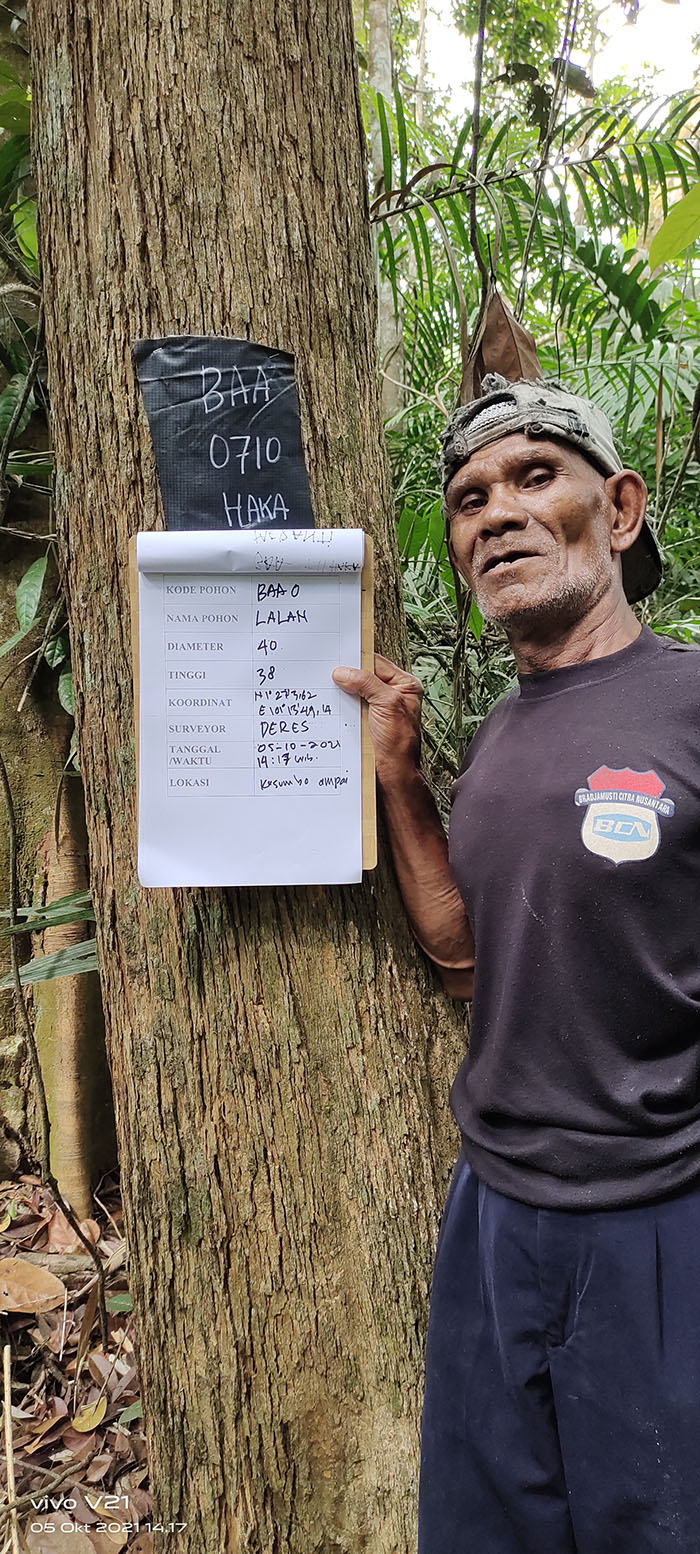 BAA
0710
HAKA
KODE POHON BAA 0
NAMA POHON LALAN
DIAMETER 40.
TINGGI 38
KOORDINAT
E 101° 13' 49,14
SURVEYOR DERES
TANGGAL /WAKTU 05-10-2021
14:17 wib.
LOKASI Kesumbo ampai
BRADJAMUSTI CITRA NUSANTARA
BCN
vivo V21
05 Okt 2021 14.17